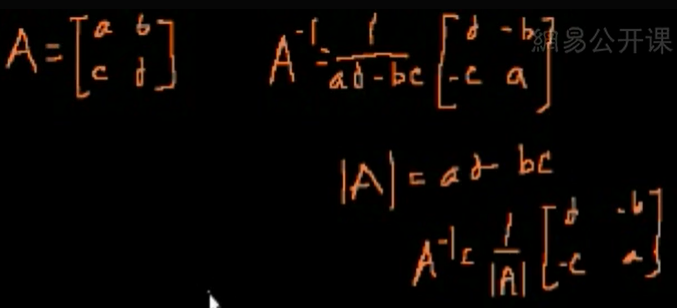 A = [a b; c d]
A^-1 = 1/(ad-bc) [d -b; -c a]
網易公开课
|A| = ad - bc
A^-1 = 1/|A| [d -b; -c a]